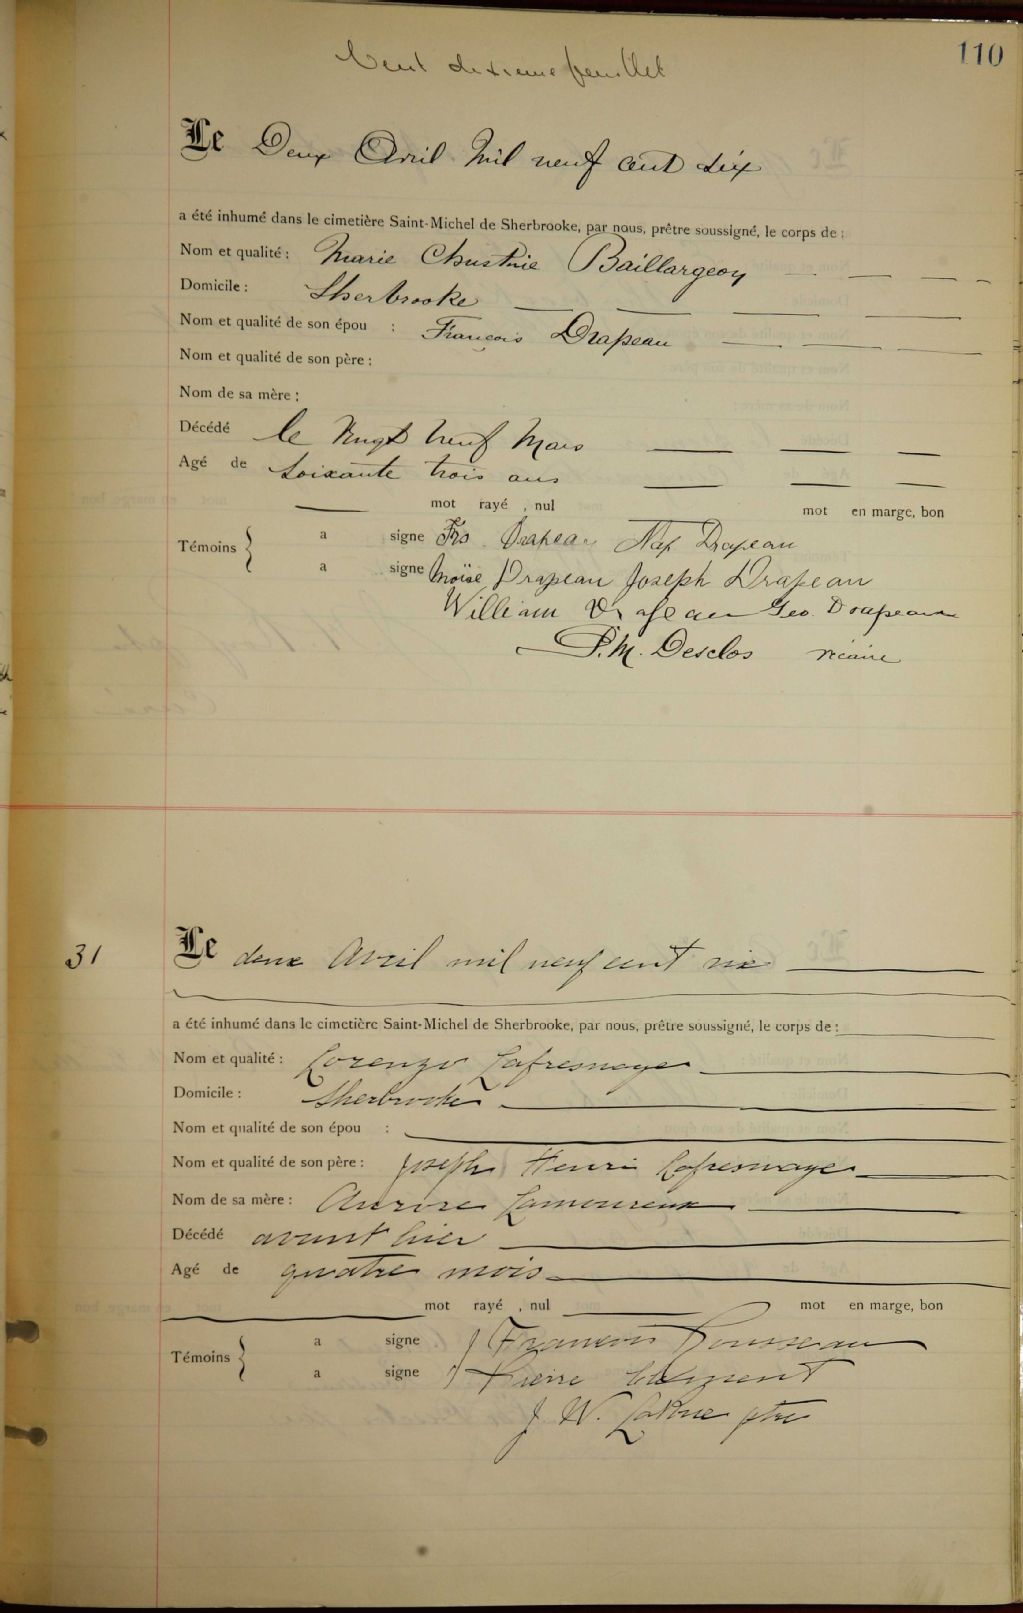 110
Cent dixieme feuillet
Le Deux Avril Mil neuf cent dix
a été inhumé dans le cimetière Saint-Michel de Sherbrooke, par nous, prêtre soussigné, le corps de :
Nom et qualité : Marie Christine Baillargeon
Domicile : Sherbrooke
Nom et qualité de son épou : François Drapeau
Nom et qualité de son père :
Nom de sa mère :
Décédé le Vingt Neuf Mars
Agé de soixante trois ans
mot rayé , nul mot en marge, bon
Témoins } a signe Frs Drapeau Nap Drapeau
a signe Moïse Drapeau Joseph Drapeau
William Drapeau Geo. Drapeau
P.M. Desclos vicaire
31 Le deux Avril mil neuf cent dix
a été inhumé dans le cimetière Saint-Michel de Sherbrooke, par nous, prêtre soussigné, le corps de :
Nom et qualité : Lorenzo Lafresnaye
Domicile : Sherbrooke
Nom et qualité de son épou :
Nom et qualité de son père : Joseph Henri Lafresnaye
Nom de sa mère : Aurore Lamoureux
Décédé avant hier
Agé de quatre mois
mot rayé , nul mot en marge, bon
Témoins } a signe François Rousseau
a signe Pierre Clément
J. W. Larue ptre